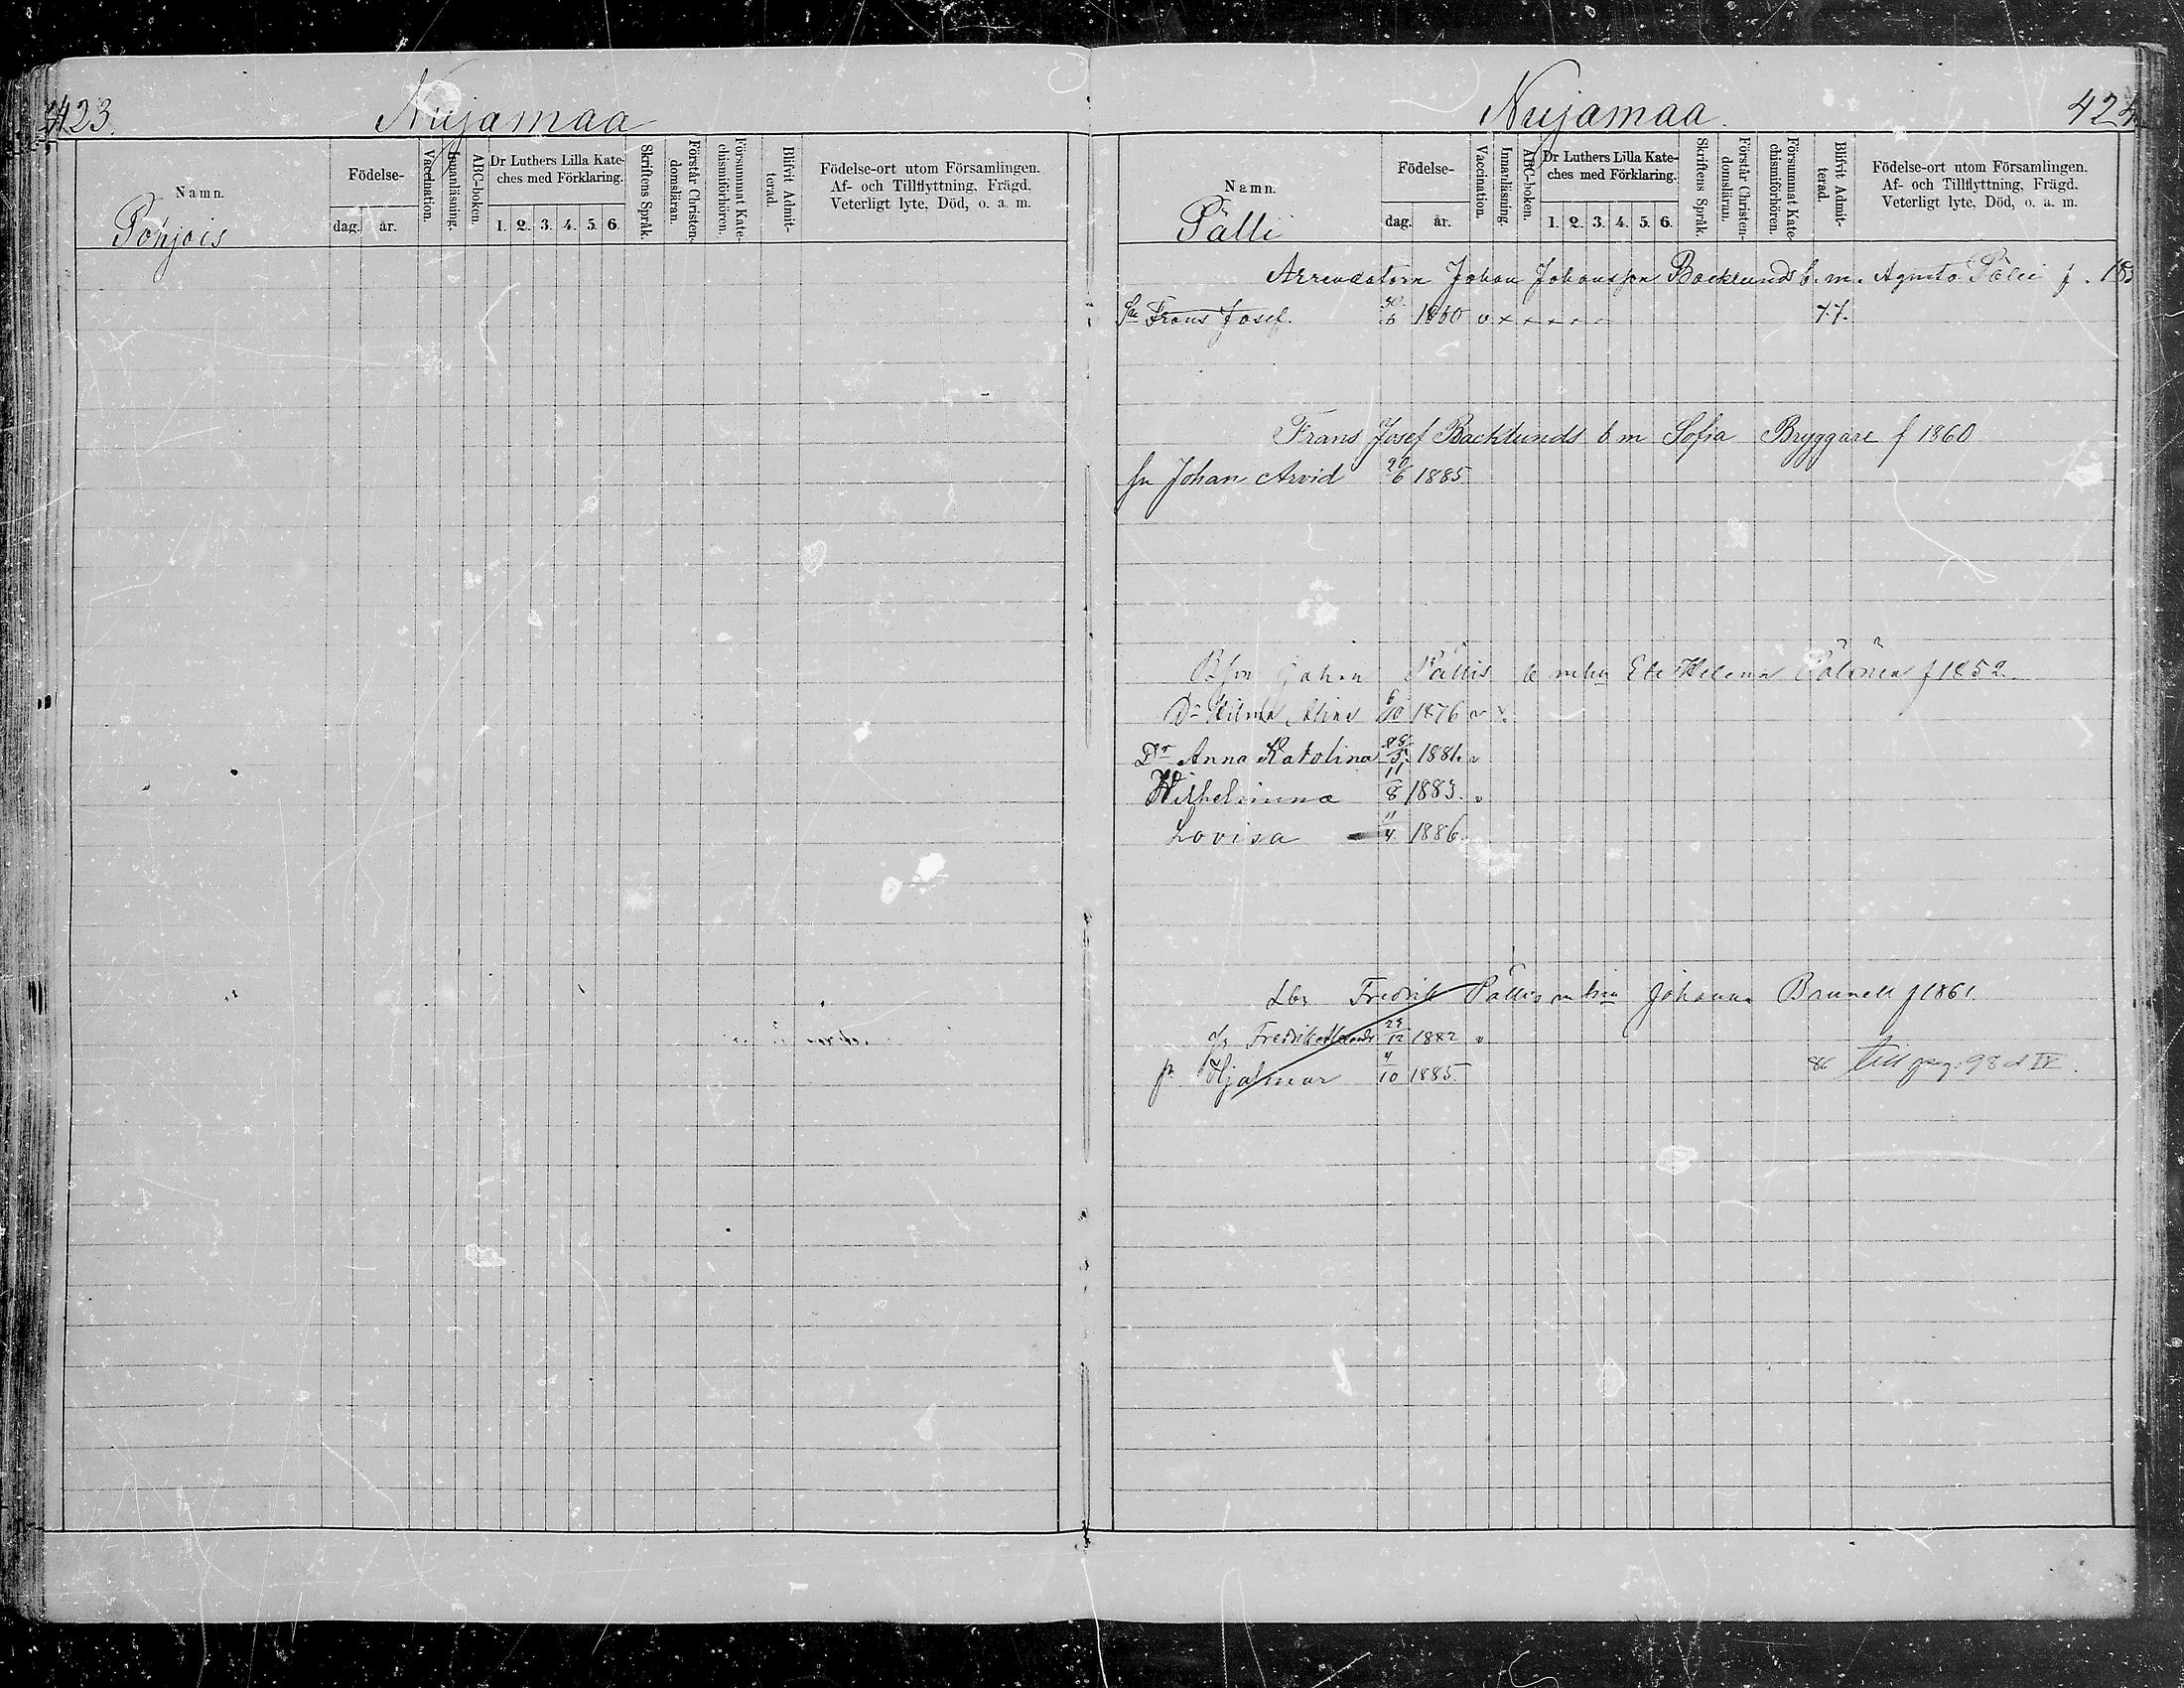 423.
Nujamaa
Namn.
Pohjois
Födelse-
dag. år.
Vaccination.
Innanläsning.
ABC-boken.
Dr Luthers Lilla Kate-
ches med Förklaring.
1. 2. 3. 4. 5. 6.
Skriftens Språk.
Förstår Christen-
domsläran.
Försummat Kate-
chismiförhören.
Blifvit Admit-
terad
Födelse-ort utom Församlingen.
Af- och Tillflyttning, Frägd,
Veterligt lyte, Död, o. a. m.
Nujamaa.
424
Namn.
Pälli
Födelse-
dag. år.
Vaccination.
Innanläsning.
ABC-boken.
Dr Luthers Lilla Kate-
ches med Förklaring.
1. 2. 3. 4. 5. 6.
Skriftens Språk.
Förstår Christen-
domsläran.
Försummat Kate-
chismiförhören.
Blifvit Admit-
terad.
Födelse-ort utom Församlingen.
Af- och Tillflyttning, Frägd,
Veterligt lyte, Död, o. a. m.
Arrendatorn Johan Johansson Backlunds b. m. Agneta f. 18
Sn Frans Josef. 1860 v x x x x x 77.
Frans Josef Backlunds b m Sofia Bryggare f 1860
sn Johan Arvid 20/6 1885.
Johan Pällis b Helena Pälönen f 1852.
Dr Hilma Alina 6/10 1876 v x
Dr Anna Karolina 28/3 1881. v
Wilhelmina 11/8 1883. v
Lovisa 11/4 1886.
Lbr Fredrik Pällis Johanna Brunell f 1861.
Fredrik 29/12 1882 v
sn Hjalmar 4/10 1885. 86 till pag. 98 d IV.